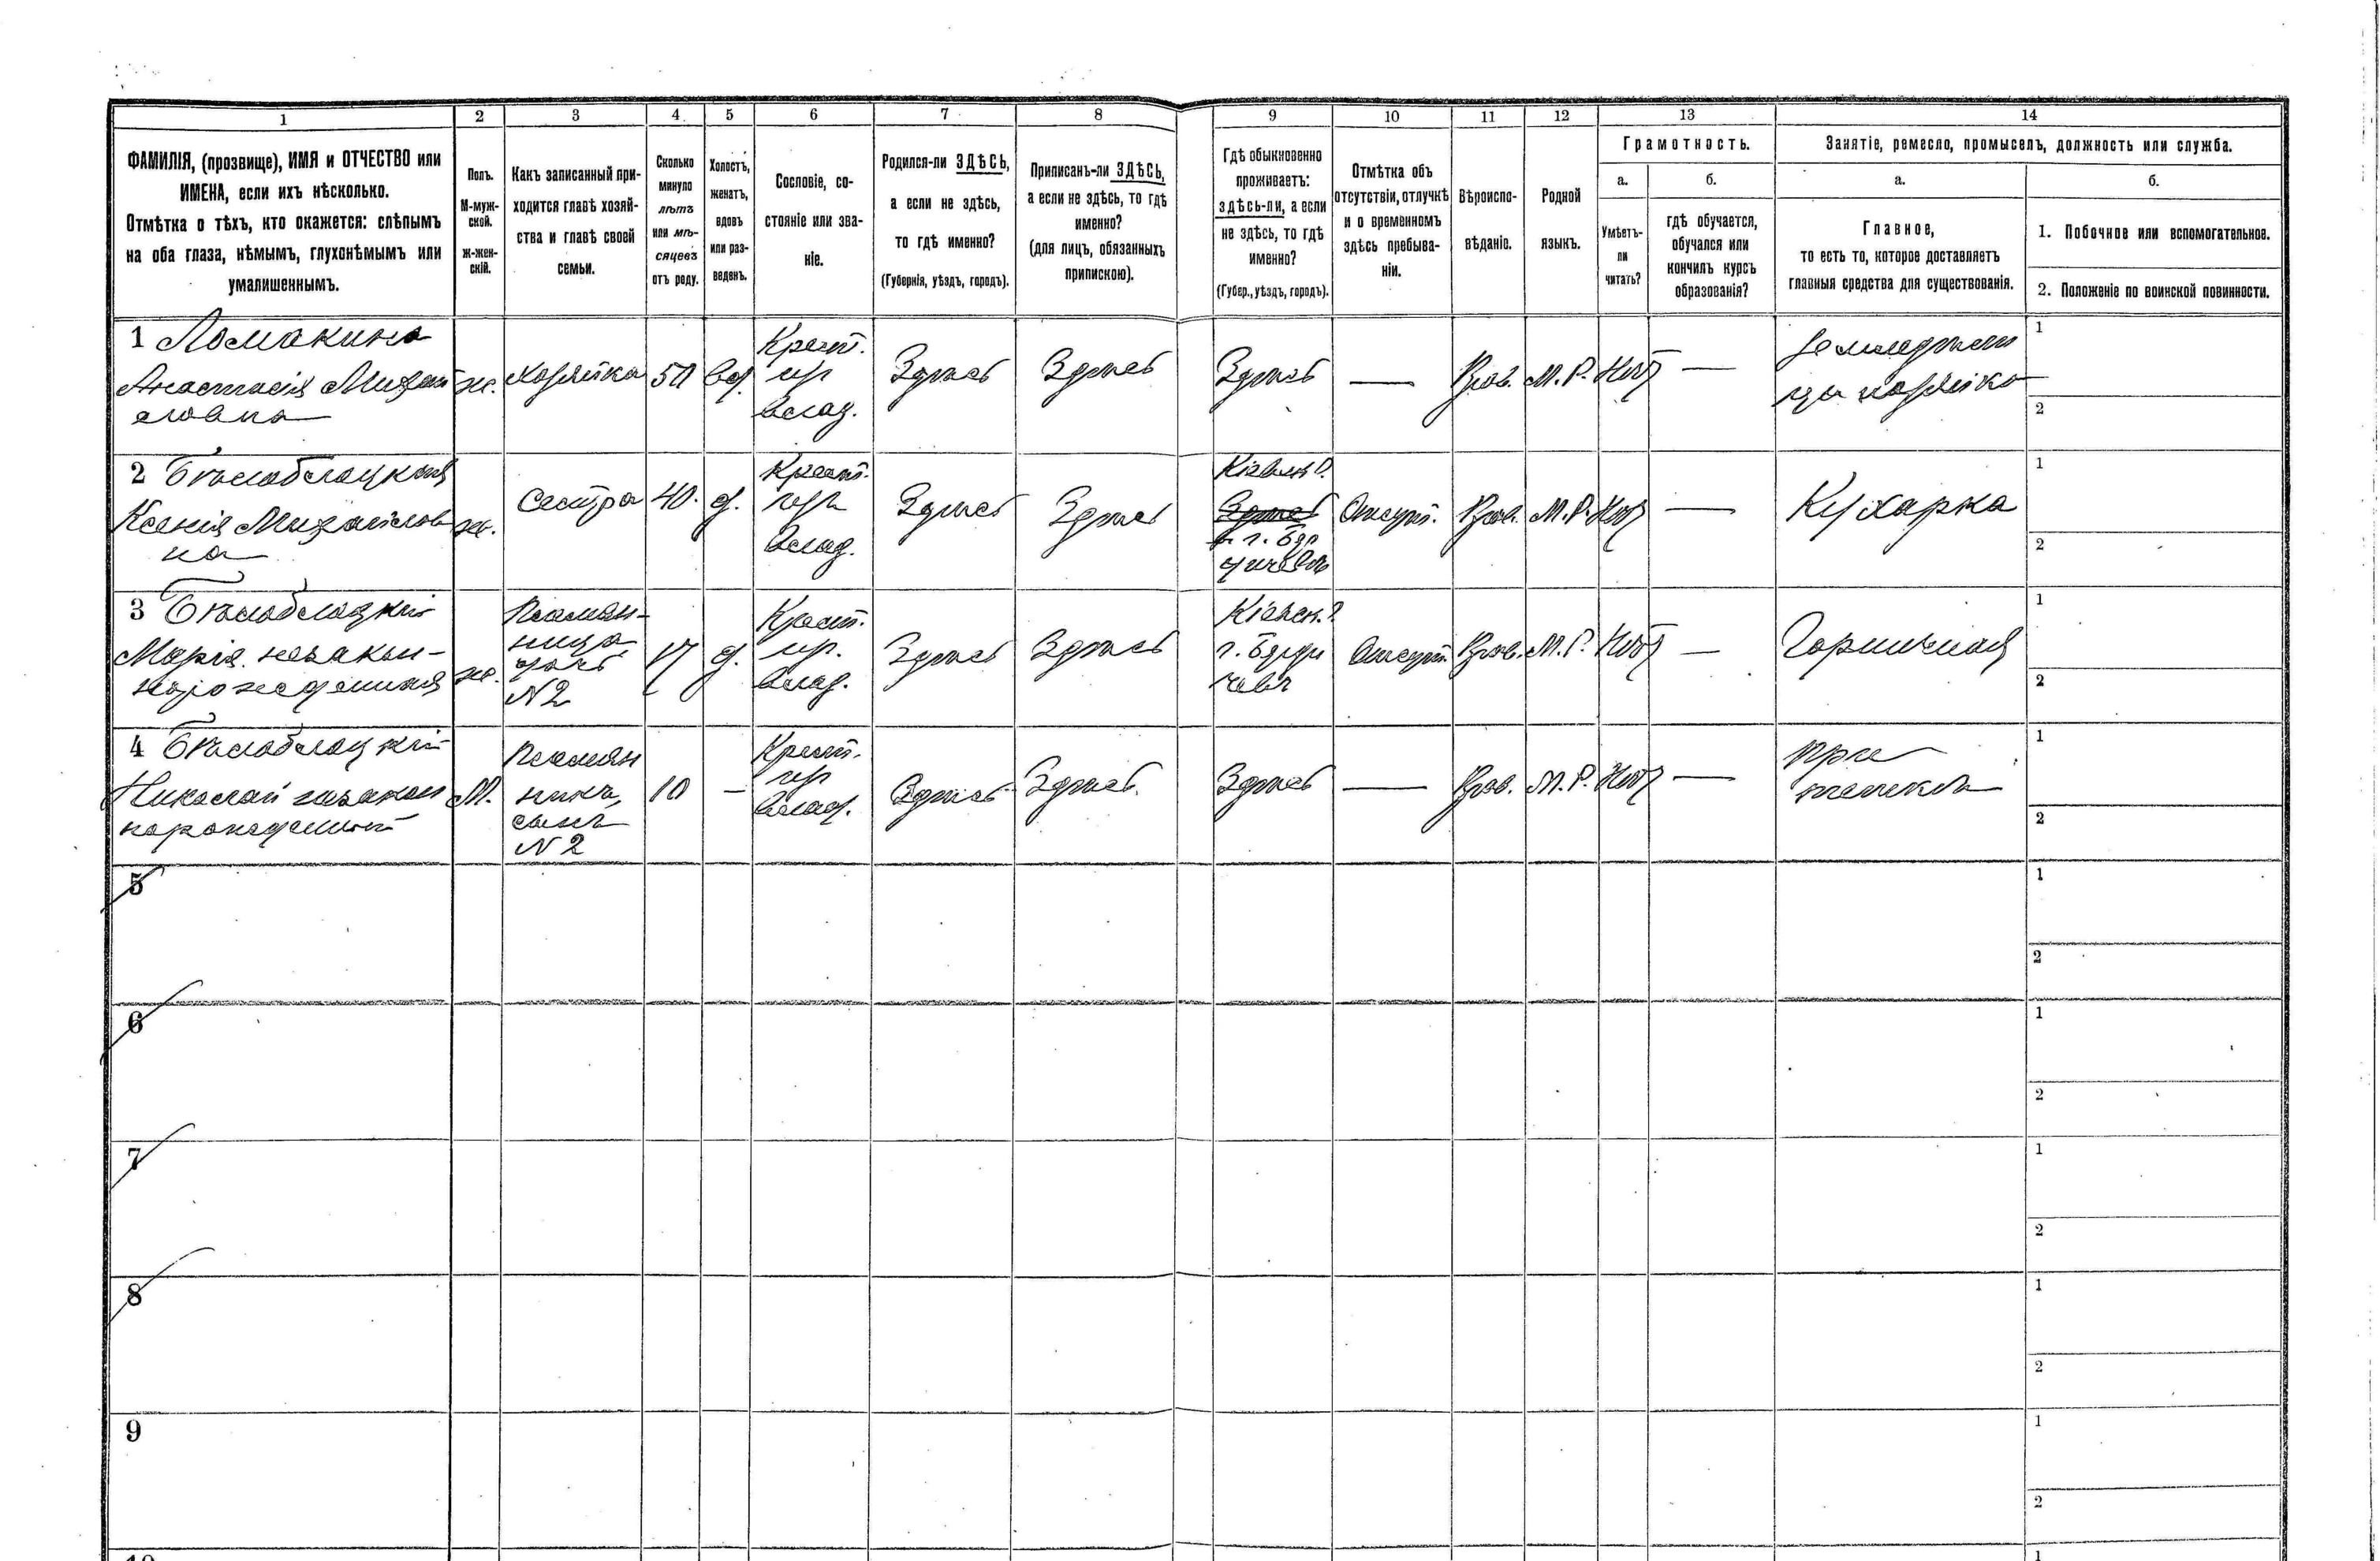 1
2
3
4
5
6
7
8
9
10
11
12
13
14
ФАМИЛІЯ, (прозвище), ИМЯ и ОТЧЕСТВО или
ИМЕНА, если ихъ нѣсколько.
Отмѣтка о тѣхъ, кто окажется: слѣпымъ
на оба глаза, нѣмымъ, глухонѣмымъ или
умалишеннымъ.
Полъ.
М-муж-
ской.
ж-жен-
скій.
Какъ записанный при-
ходится главѣ хозяй-
ства и главѣ своей
семьи.
Сколько
минуло
лѣтъ
или мѣ-
сяцевъ
отъ роду.
Холостъ,
женатъ,
вдовъ
или раз-
веденъ.
Сословіе, со-
стояніе или зва-
ніе.
Родился-ли ЗДѢСЬ,
а если не здѣсь,
то гдѣ именно?
(Губернія, уѣздъ, городъ).
Приписанъ-ли ЗДѢСЬ,
а если не здѣсь, то гдѣ
именно?
(для лицъ, обязанныхъ
припискою).
Гдѣ обыкновенно
проживаетъ:
здѣсь-ли, а если
не здѣсь, то гдѣ
именно?
(Губер., уѣздъ, городъ).
Отмѣтка объ
отсутствіи, отлучкѣ
и о временномъ
здѣсь пребыва-
ніи.
Вѣроиспо-
вѣданіе.
Родной
языкъ.
Грамотность.
а.
Умѣетъ-
ли
читать?
б.
гдѣ обучается,
обучался или
кончилъ курсъ
образованія?
Занятіе, ремесло, промыселъ, должность или служба.
а.
Главное,
то есть то, которое доставляетъ
главныя средства для существованія.
б.
1. Побочное или вспомогательное.
2. Положеніе по воинской повинности.
1 Ломакина
Анастасія Михай
ловна
ж.
Хозяйка
50
вд.
Крест.
изъ
влад.
Здѣсь
Здѣсь
Здѣсь
—
Прав.
М. Р.
Нѣтъ
—
хозяйка
1
2
2 Бѣлоблоцкая
Ксенія Михайлов
на
ж.
Сестра
40.
д.
Крест.
изъ
влад.
Здѣсь
Здѣсь
Здѣсь
Отсут.
Прав.
М. Р.
Нѣтъ
—
Кухарка
1
2
3 Бѣлоблоцкая
Марія незакон-
норожденная
ж.
Племян-
ница
дочь
N2
17
д.
Крест.
из.
влад.
Здѣсь
Здѣсь
Кіевск.
г. Берди
чевъ
Отсут.
Прав.
М. Р.
Нѣтъ
—
Горничная
1
2
4 Бѣлоблоцкій
Николай незакон
норожденный
М.
Племян
никъ,
сынъ
N2
10
—
Крест.
из
влад.
Здѣсь
Здѣсь.
Здѣсь
—
Прав.
М. Р.
Нѣтъ
—
При
теткѣ
1
2
5
1
2
6
1
2
7
1
2
8
1
2
9
1
2
1